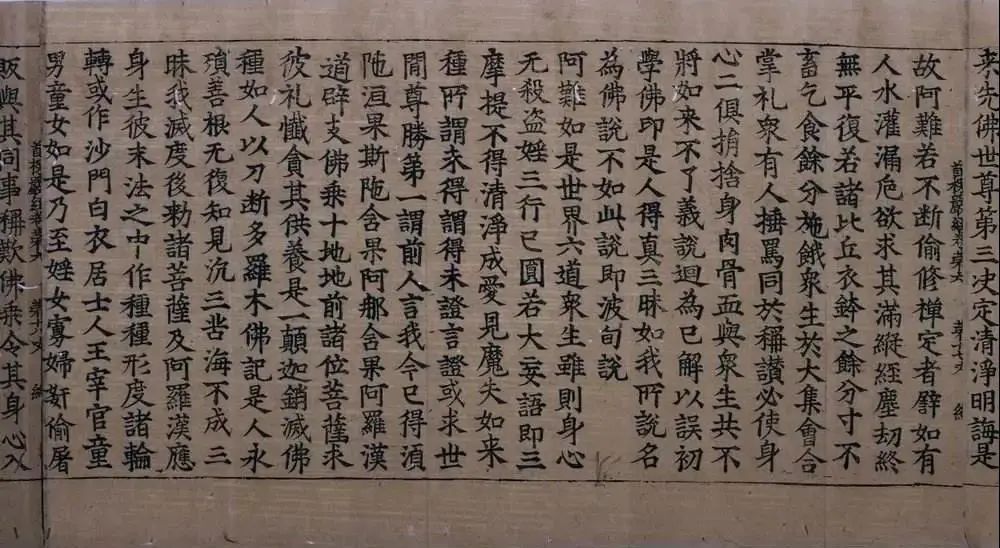 來先佛世尊第三决定清淨明誨是
故阿難若不断偷修禪定者譬如有
首楞嚴經卷第六
人水灌漏巵欲求其滿縱經塵劫終
無平復若諸比丘衣鉢之餘分寸不
畜乞食餘分施餓衆生於大集會合
掌礼衆有人捶罵同於稱讃必使身
心二俱捐捨身肉骨血與衆生共不
將如来不了義說迴為已解以誤初
學佛印是人得真三昧如我所說名
為佛說不如此說即波旬說
阿難如是世界六道衆生雖則身心
无殺盗婬三行已圓若大妄語即三
摩提不得清淨成愛見魔失如来
種所謂未得謂得未證言證或求世
間尊勝第一謂前人言我今已得湏
陁洹果斯陁含果阿那含果阿羅漢
道辟支佛乘十地地前諸位菩薩求
彼礼懴貪其供養是一顛迦銷滅佛
種如人以刀断多羅木佛記是人永
殞善根无復知見沉三苦海不成三
昧我滅度後勑諸菩薩及阿羅漢應
身生彼末法之中作種種形度諸輪
轉或作沙門白衣居士人王宰官童
男童女如是乃至婬女寡婦姧偷屠
首楞嚴經卷第六
販與其同事稱歎佛乘令其身心入